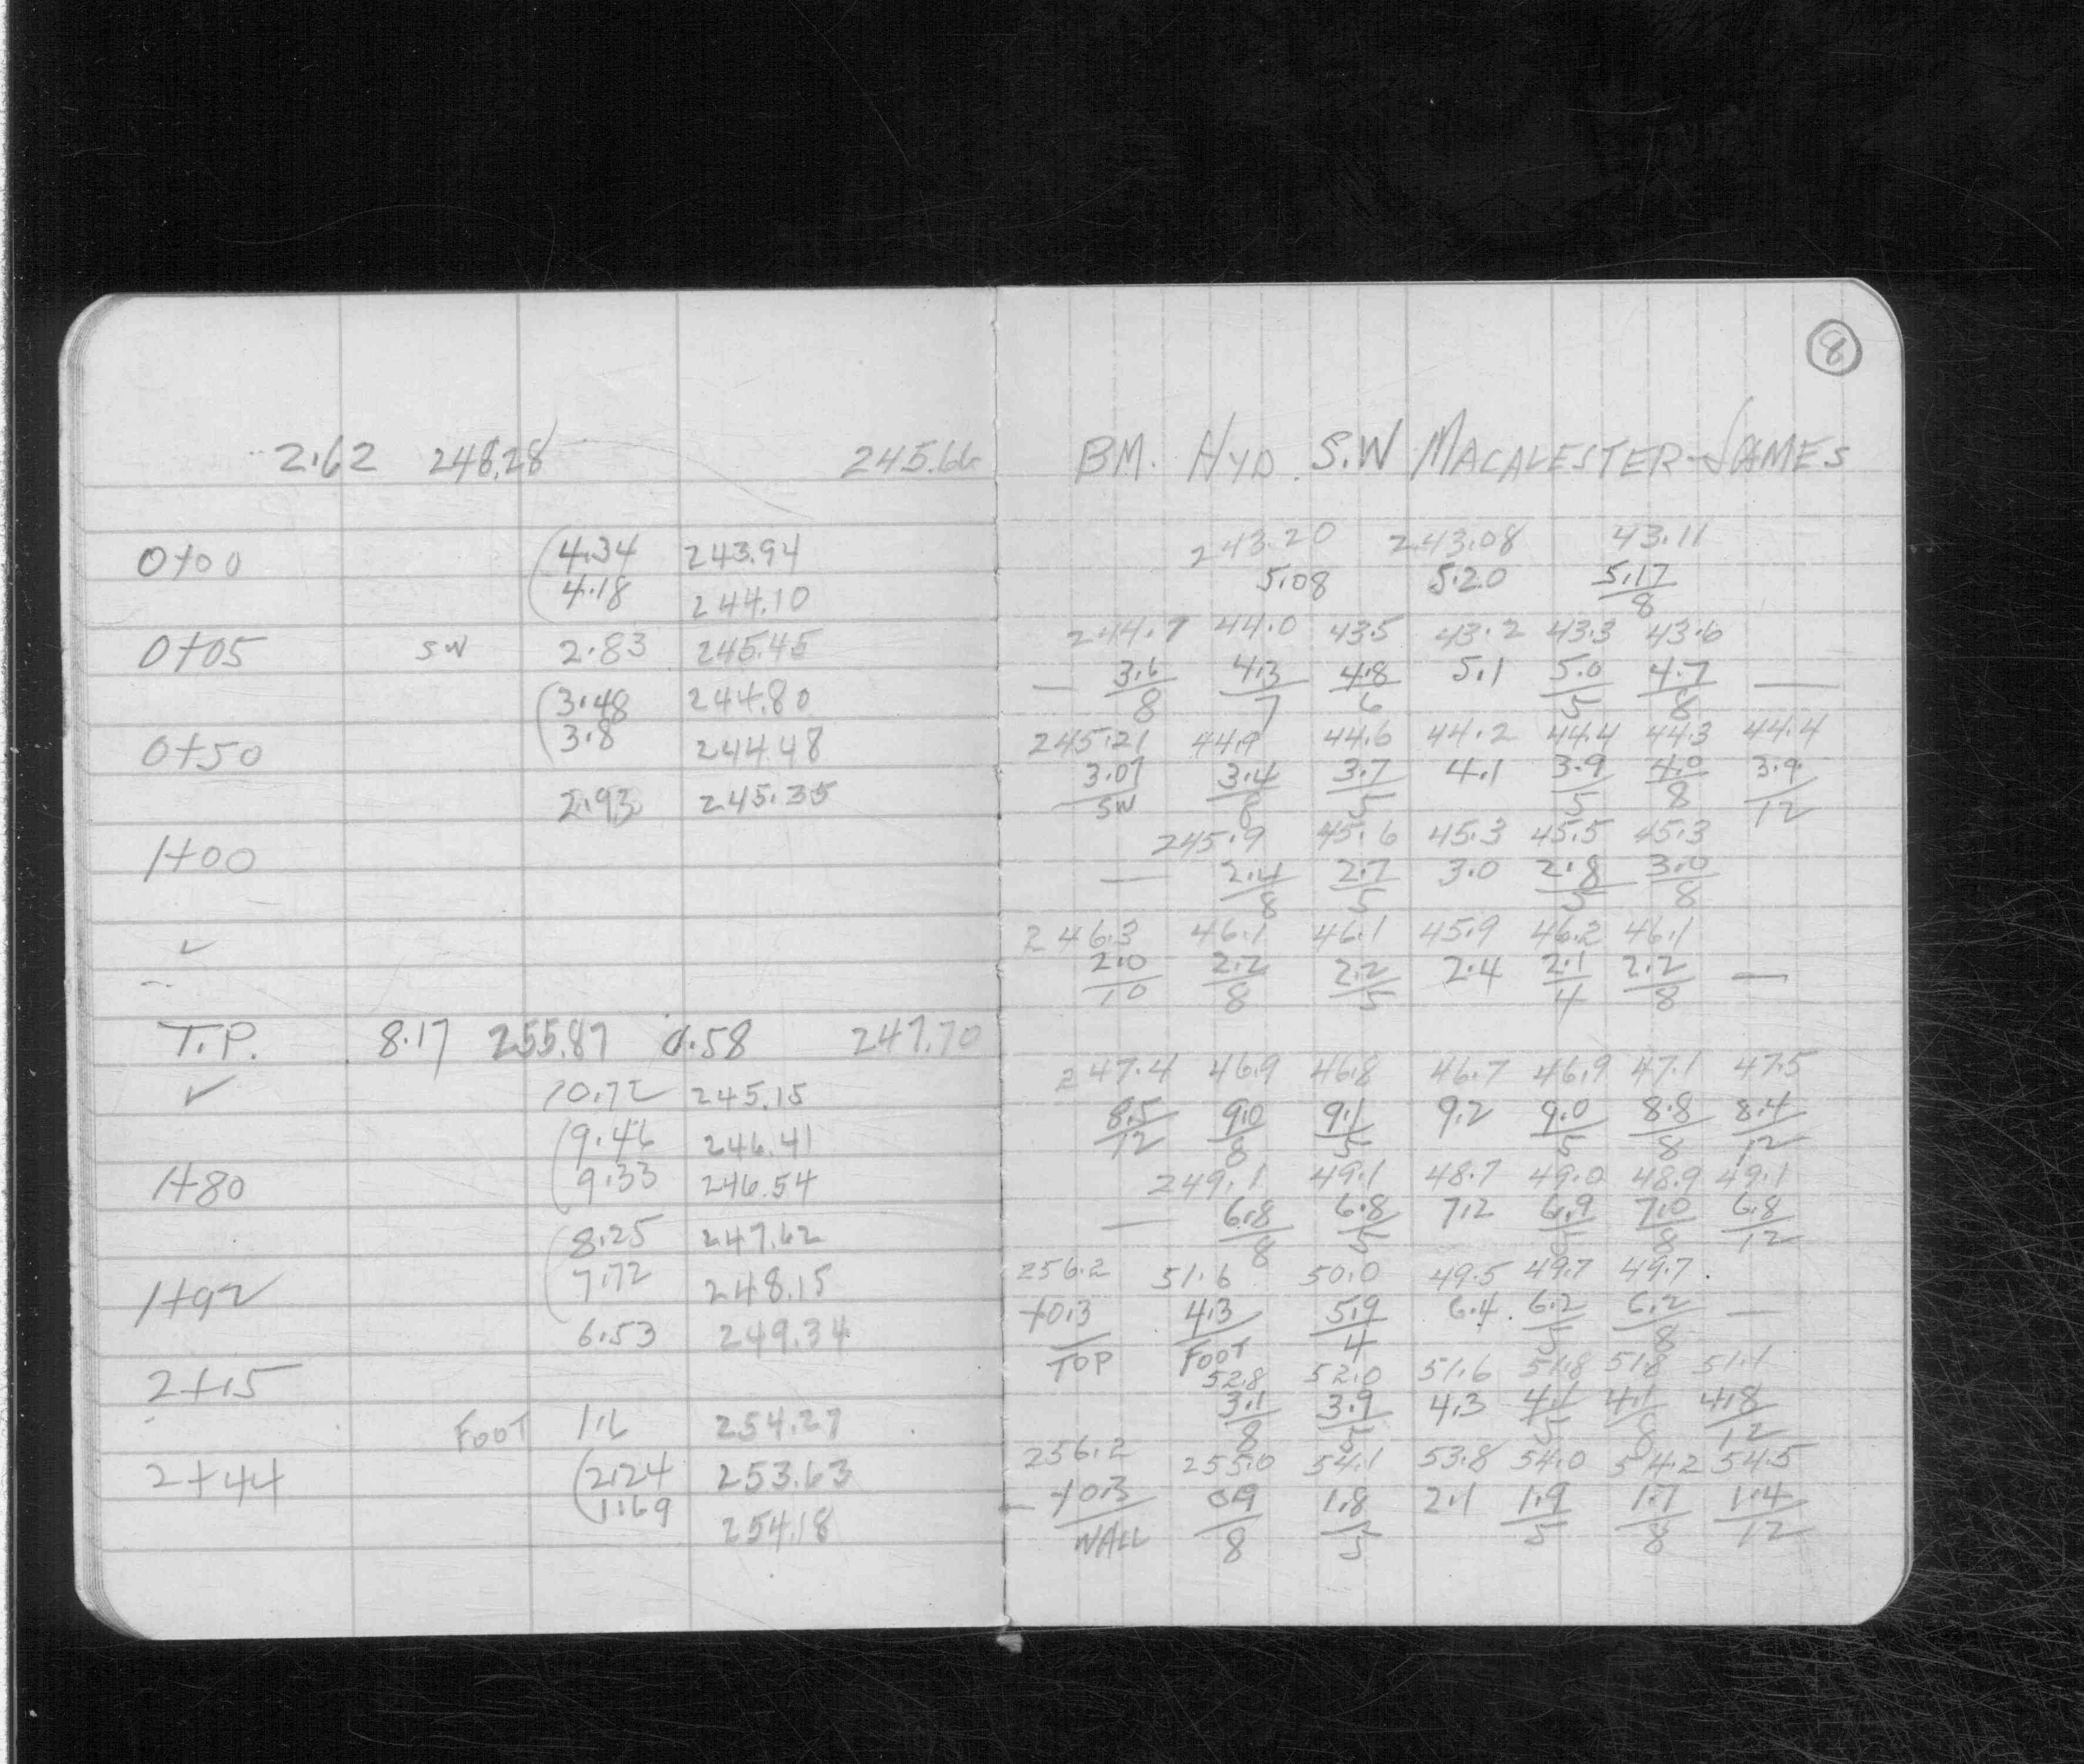 8
2.62 248.28 245.66 BM. HYD. S.W MACALESTER-JAMES
0+00 4.34 243.94
4.18 244.10
0+05 SW 2.83 245.45
3.48 244.80
0+50 3.8 244.48
2.93 245.35
1+00
✓
T.P. 8.17 255.87 0.58 247.70
✓ 10.72 245.15
9.46 246.41
1+80 9.33 246.54
8.25 247.62
1+92 7.72 248.15
6.53 249.34
2+15
FOOT 1.6 254.27
2+44 2.24 253.63
1.69 254.18
243.20 243.08 43.11
5.08 5.20 5.17
8
244.7 44.0 43.5 43.2 43.3 43.6
— 3.6 4.3 4.8 5.1 5.0 4.7 —
8 7 6 5 8
245.21 44.9 44.6 44.2 44.4 44.3 44.4
3.07 3.4 3.7 4.1 3.9 4.0 3.9
SW 8 5 5 8 12
245.9 45.6 45.3 45.5 45.3
— 2.4 2.7 3.0 2.8 3.0
8 5 5 8
246.3 46.1 46.1 45.9 46.2 46.1
2.0 2.2 2.2 2.4 2.1 2.2 —
10 8 5 4 8
247.4 46.9 46.8 46.7 46.9 47.1 47.5
8.5 9.0 9.1 9.2 9.0 8.8 8.4
12 8 5 5 8 12
249.1 49.1 48.7 49.0 48.9 49.1
— 6.8 6.8 7.2 6.9 7.0 6.8
8 5 5 8 12
256.2 51.6 50.0 49.5 49.7 49.7
+0.3 4.3 5.9 6.4 6.2 6.2 —
TOP FOOT 4 5 8
52.8 52.0 51.6 51.8 51.8 51.1
3.1 3.9 4.3 4.1 4.1 4.8
8 5 5 8 12
256.2 255.0 54.1 53.8 54.0 54.2 54.5
+0.3 0.9 1.8 2.1 1.9 1.7 1.4
WALL 8 5 5 8 12